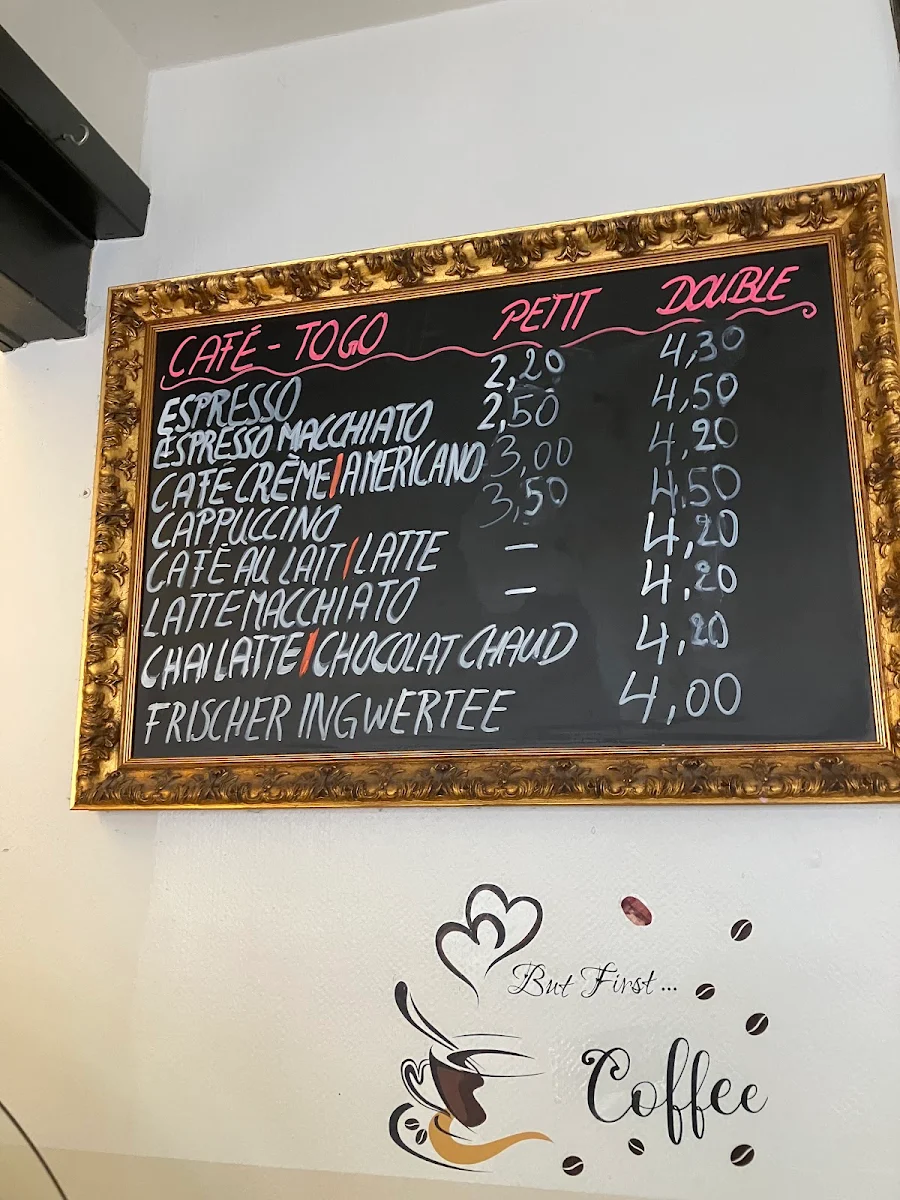 CAFÉ - TO GO PETIT DOUBLE
ESPRESSO 2,20 4,30
ESPRESSO MACCHIATO 2,50 4,50
CAFÉ CRÈME/AMERICANO 3,00 4,20
CAPPUCCINO 3,50 4,50
CAFÉ AU LAIT/LATTE – 4,20
LATTE MACCHIATO – 4,20
CHAI LATTE/CHOCOLAT CHAUD 4,20
FRISCHER INGWERTEE 4,00
But First...
Coffee